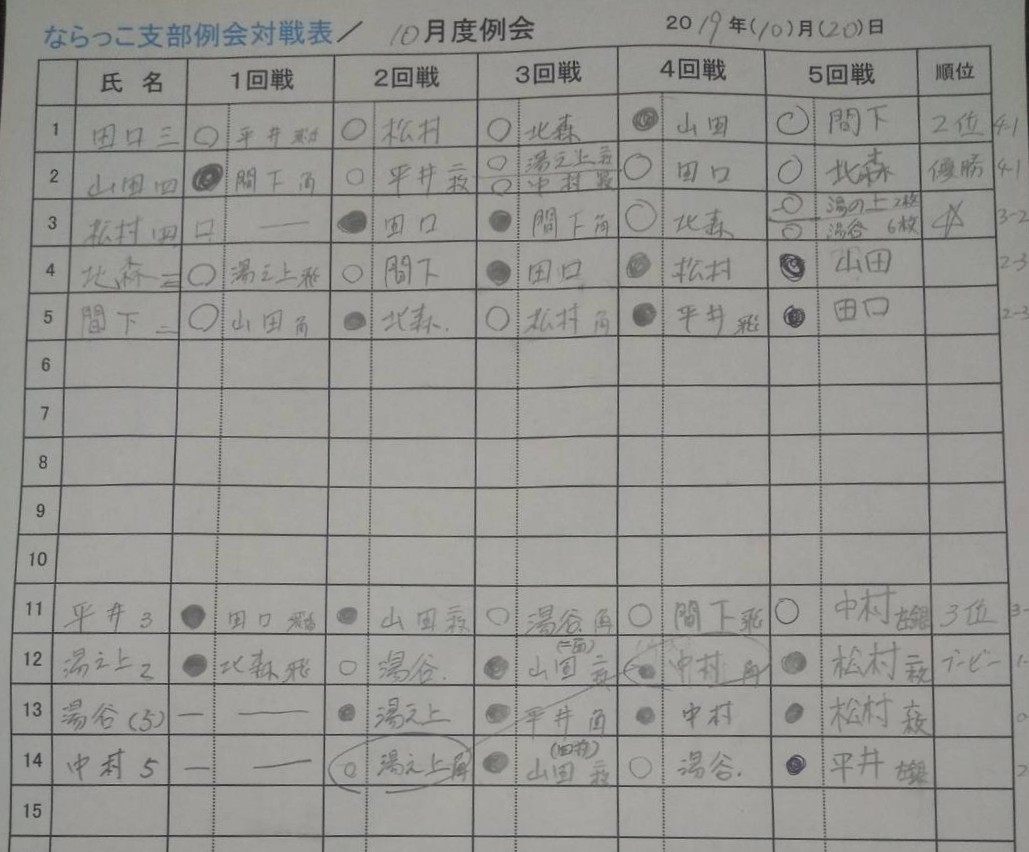 ならっこ支部例会対戦表／ 10月度例会 2019年(10)月(20)日
氏名 1回戦 2回戦 3回戦 4回戦 5回戦 順位
1 田口三 ○ 平井 ○ 松村 ○ 北森 ● 山田 ○ 間下 2位 4-1
2 山田四 ● 間下角 ○ 平井二枚 ○ 湯之上 ○ 中村 ○ 田口 ○ 北森 優勝 4-1
3 松村四 口 — ● 田口 ● 間下角 ○ 北森 ○ 湯の上 2枚 ○ 湯谷 6枚 3-2
4 北森二 ○ 湯之上飛 ○ 間下 ● 田口 ● 松村 ● 山田 2-3
5 間下二 ○ 山田角 ● 北森. ○ 松村角 ● 平井飛 ● 田口 2-3
6
7
8
9
10
11 平井3 ● 田口 ● 山田 ○ 湯谷角 ○ 間下飛 ○ 中村 3位 3-
12 湯之上2 ● 北森飛 ○ 湯谷. ● 山田 ● 中村角 ● 松村 ブービー
13 湯谷(5) — — ● 湯之上 ● 平井角 ● 中村 ● 松村
14 中村5 — — ○ 湯之上角 ● 山田 ○ 湯谷. ● 平井
15